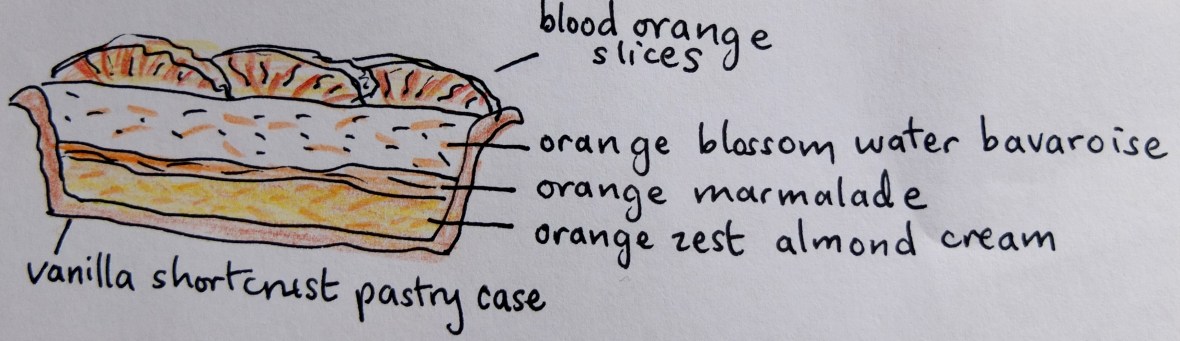 blood orange
slices
orange blossom water bavaroise
orange marmalade
orange zest almond cream
vanilla shortcrust pastry case